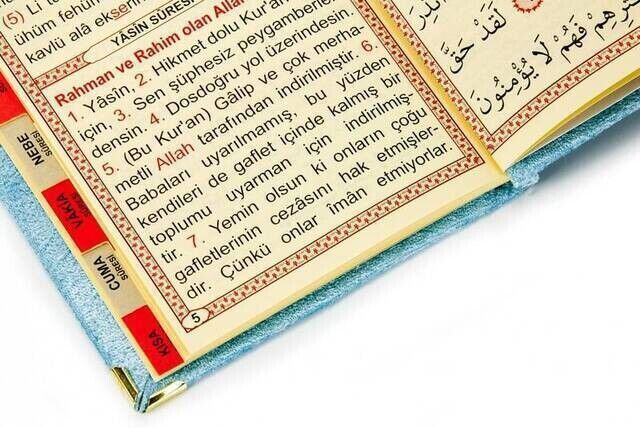 (5) Li t
ühüm fehüm
kavlü alâ ekserih
YÂSİN SÛRESİ
Rahman ve Rahim olan Allah
1. Yâsîn, 2. Hikmet dolu Kur'an
için, 3. Sen şüphesiz peygamberler
densin. 4. Dosdoğru yol üzerindesin.
5. (Bu Kur'an) Gâlip ve çok merha-
metli Allah tarafından indirilmiştir. 6.
Babaları uyarılmamış, bu yüzden
kendileri de gaflet içinde kalmış bir
toplumu uyarman için indirilmiş-
tir. 7. Yemin olsun ki onların çoğu
gafletlerinin cezâsını hak etmişler-
dir. Çünkü onlar imân etmiyorlar.
5
NEBE SÛRESİ
VÂKIA SÛRESİ
CUMA SÛRESİ
KISA
لَقَدْ حَقَّ
فَهُمْ لَا يُؤْمِنُونَ